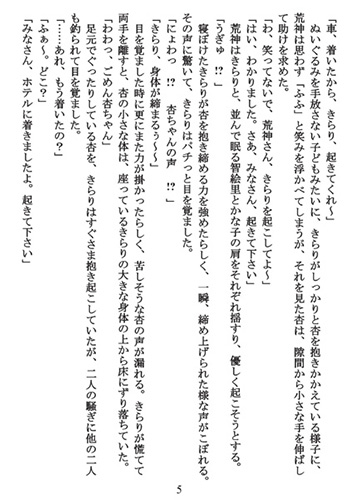 「車、着いたから、きらり、起きてくれ～」
　ぬいぐるみを手放さない子どもみたいに、きらりがしっかりと杏を抱きかかえている様子に、
荒神は思わず「ふふ」と笑みを浮かべてしまうが、それを見た杏は、隙間から小さな手を伸ばし
て助けを求めた。
「わ、笑ってないで、荒神さん、きらりを起こしてよ～」
「はい、わかりました。さあ、みなさん、起きて下さい」
　荒神はきらりと、並んで眠る智絵里とかな子の肩をそれぞれ揺すり、優しく起こそうとする。
「うぎゅ！？」
　寝ぼけたきらりが杏を抱き締める力を強めたらしく、一瞬、締め上げられた様な声がこぼれる。
その声に驚いて、きらりはパチっと目を覚ました。
「にょわっ　！？　杏ちゃんの声　！？」
「きらり、身体が締まるぅ～～」
　目を覚ました時に更にまた力が掛かったらしく、苦しそうな杏の声が漏れる。きらりが慌てて
両手を離すと、杏の小さな体は、座っているきらりの大きな身体の上から床にずり落ちていた。
「わわっ、ごめん杏ちゃん」
　足元でぐったりしている杏を、きらりはすぐさま抱き起こしていたが、二人の騒ぎに他の二人
も釣られて目を覚ました。
「……あれ、もう着いたの？」
「ふぁ～。どこ？」
「みなさん、ホテルに着きましたよ。起きて下さい」
5